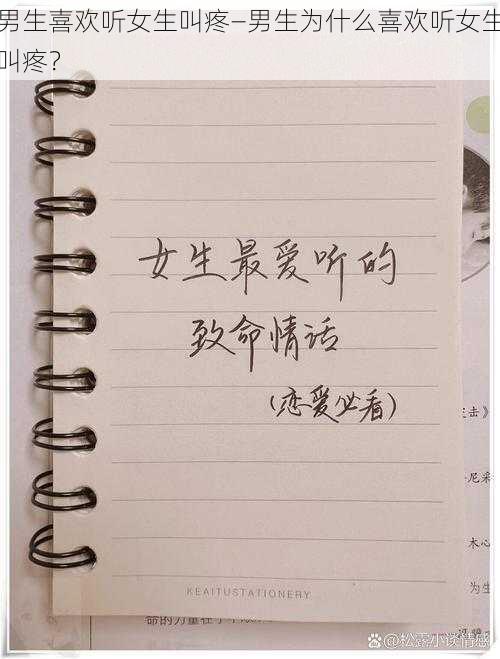 男生喜欢听女生叫疼—男生为什么喜欢听女生
叫疼？
女生最爱听的
致命情话
（恋爱必看）
击》
尼采
木心
为生
KEAITUSTATIONERY
百家号/松露小谈情感